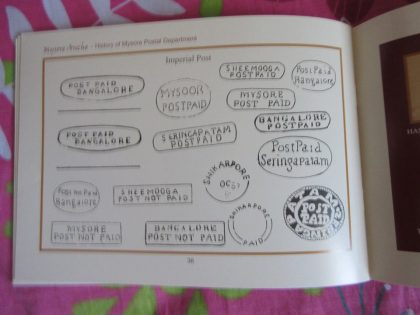 History of Mysore Postal Department
Imperial Post
POST PAID
BANGALORE
MYSOOR
POSTPAID
SHEEMOOGA
POSTPAID
Post Paid
Mangalore
MYSORE
POST PAID
BANGALORE
POSTPAID
POST PAID
BANGALORE
SERINGAPATAM
POSTPAID
Post Paid
Seringapatam
SHIKARPORE
OC 51
Post no Paid
Bangalore
SHEEMOOGA
POST NOT PAID
SHIKARPORE
PAID
POST
PAID
MYSORE
POST NOT PAID
BANGALORE
POST NOT PAID
36